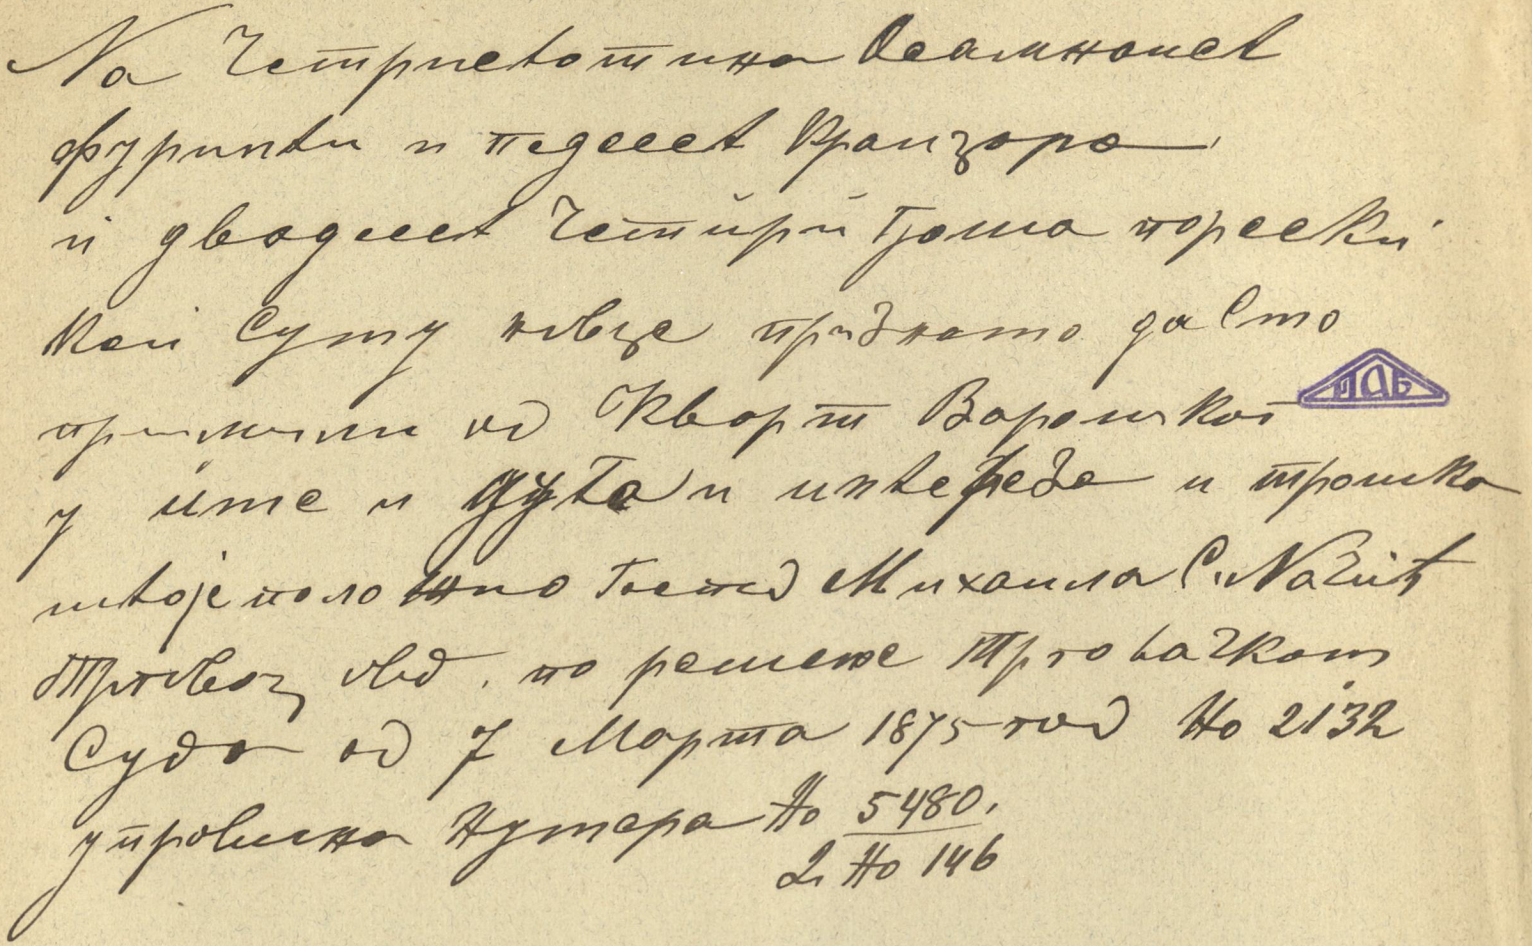 На Четристотина Осамнаист
фуринти и педесет Крајзора
и двадесет Четири Гроша порески
кои Суму новце признато да Смо
примили од Кварт Варошког
у име и дуга и интереза и трошка
што је положио Госпд Михаила С. Начић
Трговац овд. по решење Трговачком
Суда од 7 Марта 1875 год Но 2132
управична Нумера Но 5480.
2. Но 146
ИАБ